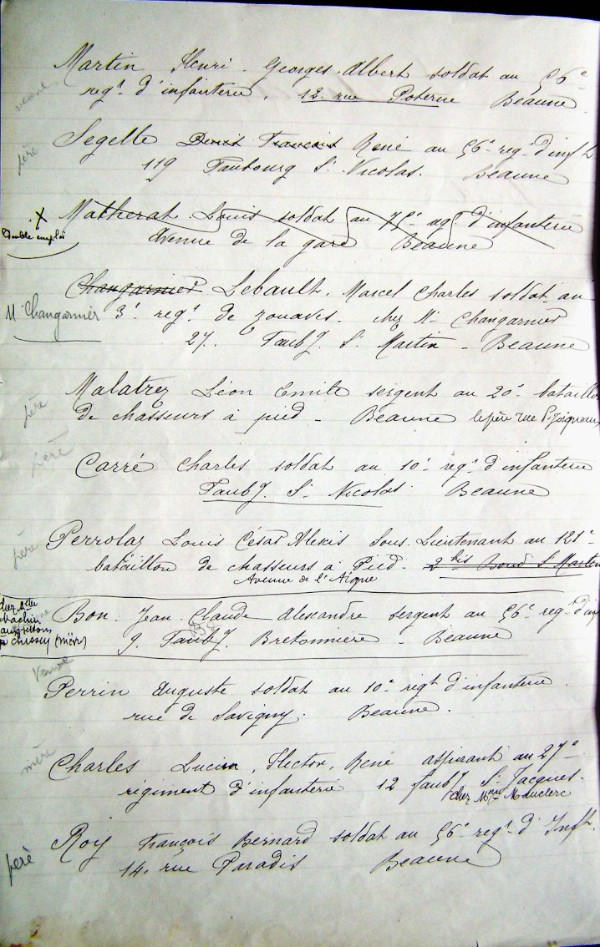 veuve
Martin Henri. Georges. Albert soldat au 56e
regt d'infanterie. 12 rue Poterne Beaune
père
Segelle Denis François René au 56e regt d'inft
119 Faubourg St Nicolas. Beaune
X
Double emploi
Matherat Louis soldat au regt d'infanterie
Avenue de la gare Beaune
Mr Changarnier
Changarnier Lebault. Marcel Charles soldat au
3e regt de zouaves. chez Mr Changarnier
27. Faubg St Martin - Beaune
père
Malatrey Léon Emile sergent au 20e bataillon
de chasseurs à pied - Beaune le père rue
père
Carré Charles soldat au 10e regt d'infanterie
Faubg St Nicolas. Beaune
père
Perrolaz Louis César Alexis Sous. Lieutenant au 121e
bataillon de chasseurs à Pied. 2 bis Boud St Martin
Avenue de l'Aigue
chez Mlle
(mère)
Bon. Jean. Claude Alexandre sergent au 56e regt d'inf
9. Faubg. Bretonnière - Beaune
veuve
Perrin Auguste soldat au 10e regt d'infanterie.
rue de Savigny. Beaune.
mère
Charles Lucien, Hector, René aspirant au 27e
régiment d'infanterie 12 faubg St Jacques.
chez Mme Moduclerc
père
Roy François Bernard soldat au 56e regt d'Inft.
14. rue Paradis Beaune